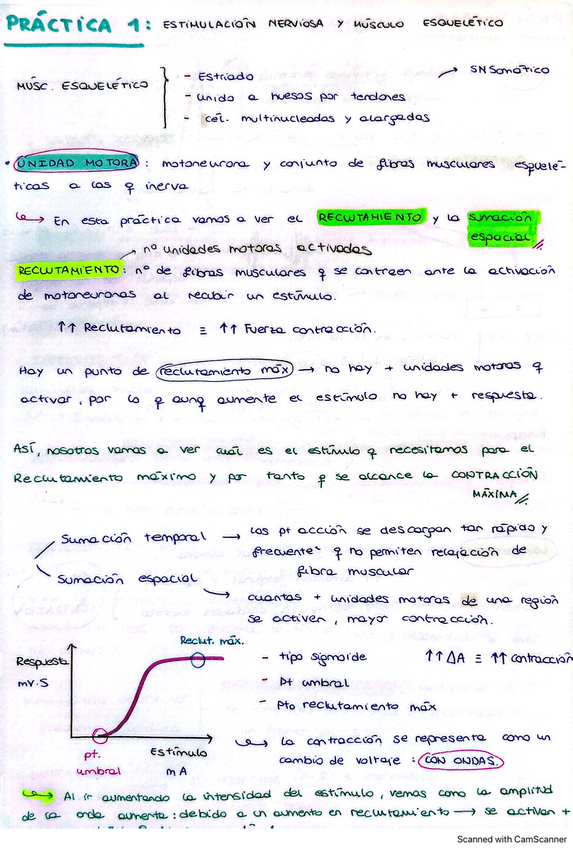 PRÁCTICA 1: ESTIMULACIÓN NERVIOSA Y MÚSCULO ESQUELÉTICO
MÚSC. ESQUELÉTICO
- Estriado → SNSomático
- Unido a huesos por tendones
- cél. multinucleadas y alargadas
• UNIDAD MOTORA: motoneurona y conjunto de fibras musculares esquelé-
ticas a las q inerva
↳ En esta práctica vamos a ver el RECLUTAMIENTO y la sumación
espacial
→ nº unidades motoras activadas
RECLUTAMIENTO: nº de fibras musculares q se contraen ante la activación
de motoneuronas al recibir un estímulo.
↑↑ Reclutamiento ≡ ↑↑ Fuerza contracción.
Hay un punto de reclutamiento máx → no hay + unidades motoras q
activar, por lo q aunq aumente el estímulo no hay + respuesta.
Así, nosotros vamos a ver cuál es el estímulo q necesitamos para el
Reclutamiento máximo y por tanto q se alcance la CONTRACCIÓN
MÁXIMA
Sumación temporal → Los pt acción se descargan tan rápido y
frecuente q no permiten relajación de
fibra muscular
Sumación espacial
→ cuantas + unidades motoras de una región
se activen, mayor contracción.
Reclut. máx.
Respuesta
mV.S
pt.
umbral
Estímulo
mA
- tipo sigmoide ↑↑ΔA ≡ ↑↑ contracción
- Pt umbral
- Pto reclutamiento máx
↳ La contracción se representa como un
cambio de voltaje: CON ONDAS.
↳ Al ir aumentando la intensidad del estímulo, vemos como la amplitud
de la onda aumenta: debido a un aumento en reclutamiento → se activan +
Scanned with CamScanner